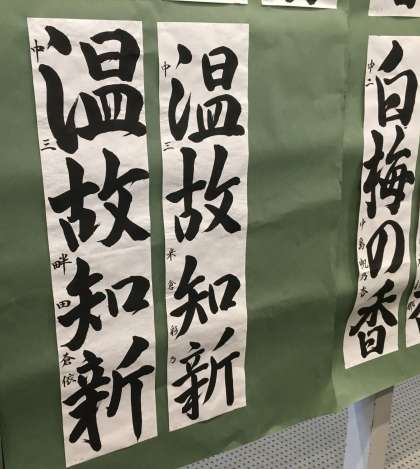 白梅の香
中二
中島帆乃香
温故知新
中三
米倉彩乃
温故知新
中三
畔田蒼依